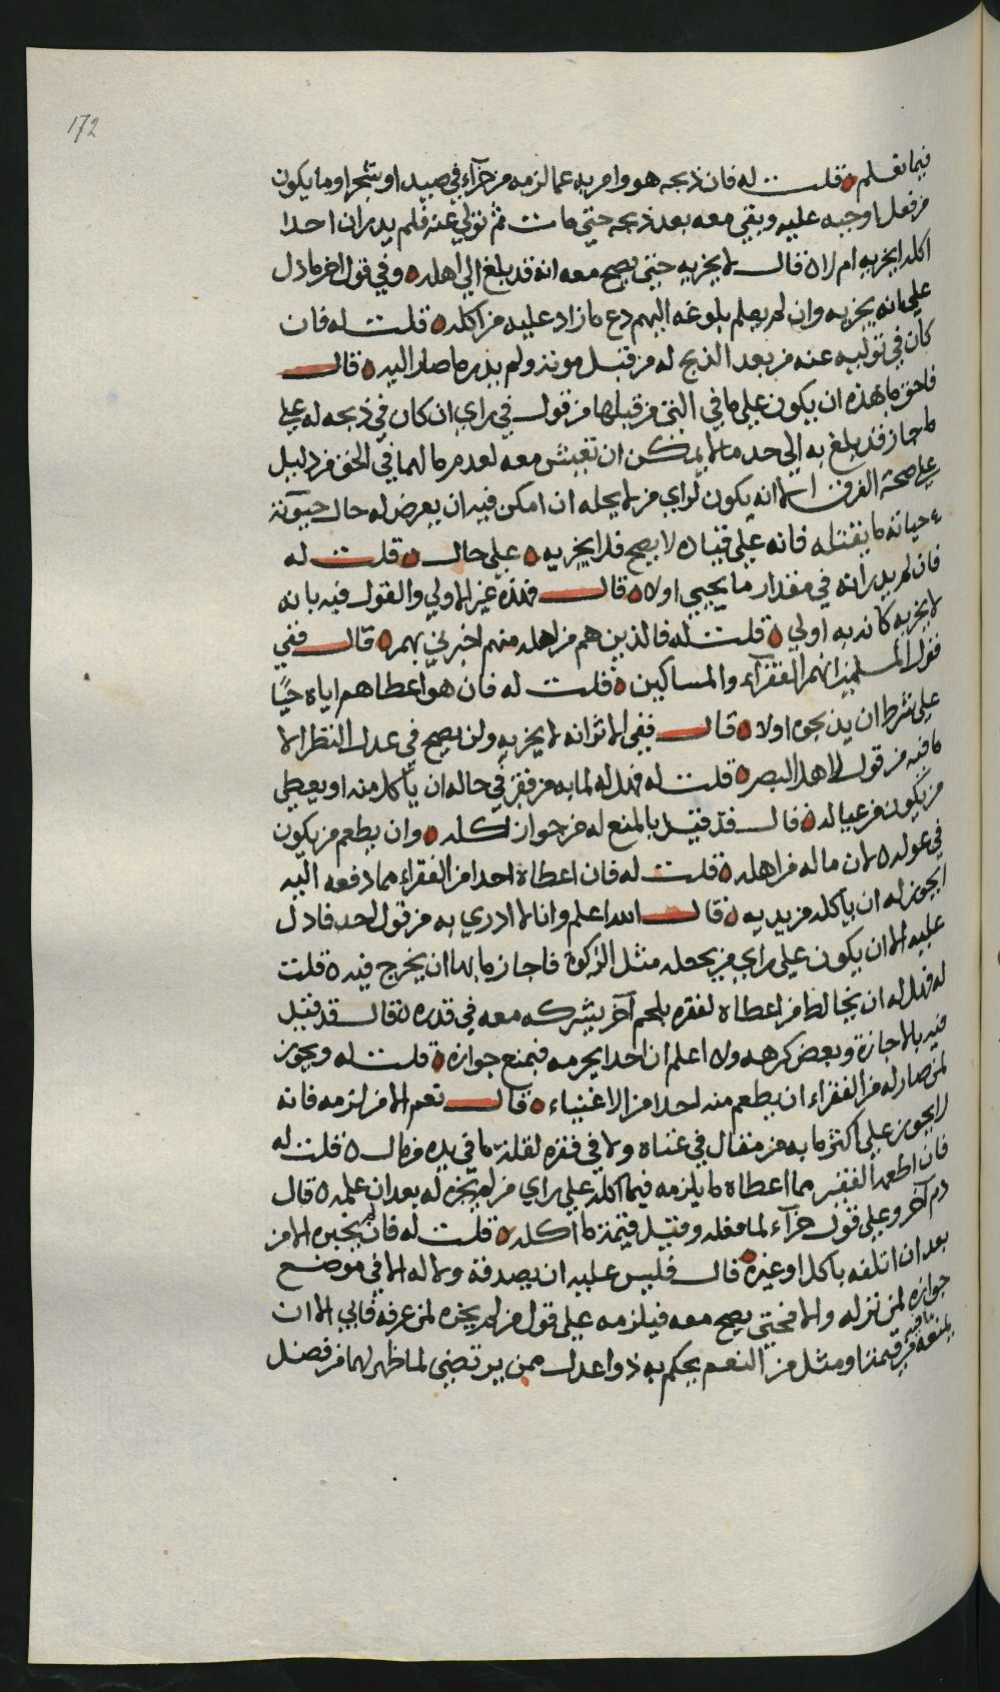 172
فيما تقدم ه قلت له فان ذبحه هو وامر به عما لزمه من جزآء في صيد او شجر او ما يكون
من فعل اوجبه عليه وبقي معه بعد ذبحه حتي مات ثم تولي عنه فلم يدر ان احدا
اكله ايجزيه ام لا ه قال لا يجزيه حتى يصح معه انه قد بلغ الي اهله ه وفي قول اخر ما دل
علي انه يجزيه وان لم يعلم بلوغه اليهم دع ما زاد عليه من اكله ه قلت له فان
كان في توليه عنه من بعد الذبح له من قبل موته ولم يدر ما صار اليه ه قال
فاحق ما بهذه ان يكون علي ما في التي من قبلها من قول في راي ان كان في ذبحه له علي
ما جاز قد بلغ به الي حد ما لا يمكن ان تعيش معه لعدم ما لهما في الحق من دليل
علي صحة الفرق الا انه يكون لراي من لا يحله ان امكن فيه ان يعرض له حال حيوته
حياته ما يقتله فانه علي قياده لا يصح فلا يجزيه ه علي حال ه قلت له
فان لم يدر أنه في مقدار ما يحيي اولا ه قال فهذه غير الاولي والقول فيه بانه
لا يجزيه كانه به اولي ه قلت له فالذين هم من اهله منهم اخبرني بهم ه قال ففي
قول المسلمين انهم الفقرآء والمساكين ه قلت له فان هو اعطاهم اياه حيًا
علي شرط ان يذبحوه اولا ه قال ففي الاثر انه لا يجزيه ولن يصح في عدل النظر الا
ما فيه من قول لاهل البصر ه قلت له فهل له لما به من فقر في حاله ان ياكل منه او يعطي
من يكون من عياله ه قال قد قيل بالمنع له من جواز اكله ه وان يطعم من يكون
في عوله ه لان ماله من اهله ه قلت له فان اعطاه احدا من الفقراء مما دفعه اليه
ايجوز له ان ياكله من يديه ه قال الله اعلم وانا لا ادري به من قول احد فادل
عليه الا ان يكون علي راي من يجعله مثل الزكوة فاجاز ما بها ان يخرج فيه ه قلت
له فهل له ان يخالط من اعطاه لفقره بلحم آخر يشركه معه في قدره ه قال قد قيل
فيه بالاجازة وبعض كرهه ولا اعلم ان احدا يحرمه فيمنع جوازه ه قلت له ويجوز
لمن صار له من الفقراء ان يطعم منه احدا من الاغنياء ه قال نعم الا من لزمه فانه
لا يجوز علي اكثر ما به من مقال في غناه ولا في فقره لقلة ما في يده من مال ه قلت له
فان اطعمه الفقير مما اعطاه ما يلزمه فيما اكله علي راي من لم يجزه له بعد ان علمه ه قال
دم آخر وعلي قول جزآء لما فعله وقيل قيمة ما اكله ه قلت له فان لم يخبره الا من
بعد ان اتلفه باكل او غيره ه قال فليس عليه ان يصدقه ولا له الا في موضع
جوازه لمن نزله والا فحتي يصح معه فيلزمه علي قول من لم يجزه لمن عرفه فابي الا ان
يتبعه ما فيه من قيمة او مثل من النعم يحكم به ذوا عدل ممن يرتضي لما ظهر لهما من فضل